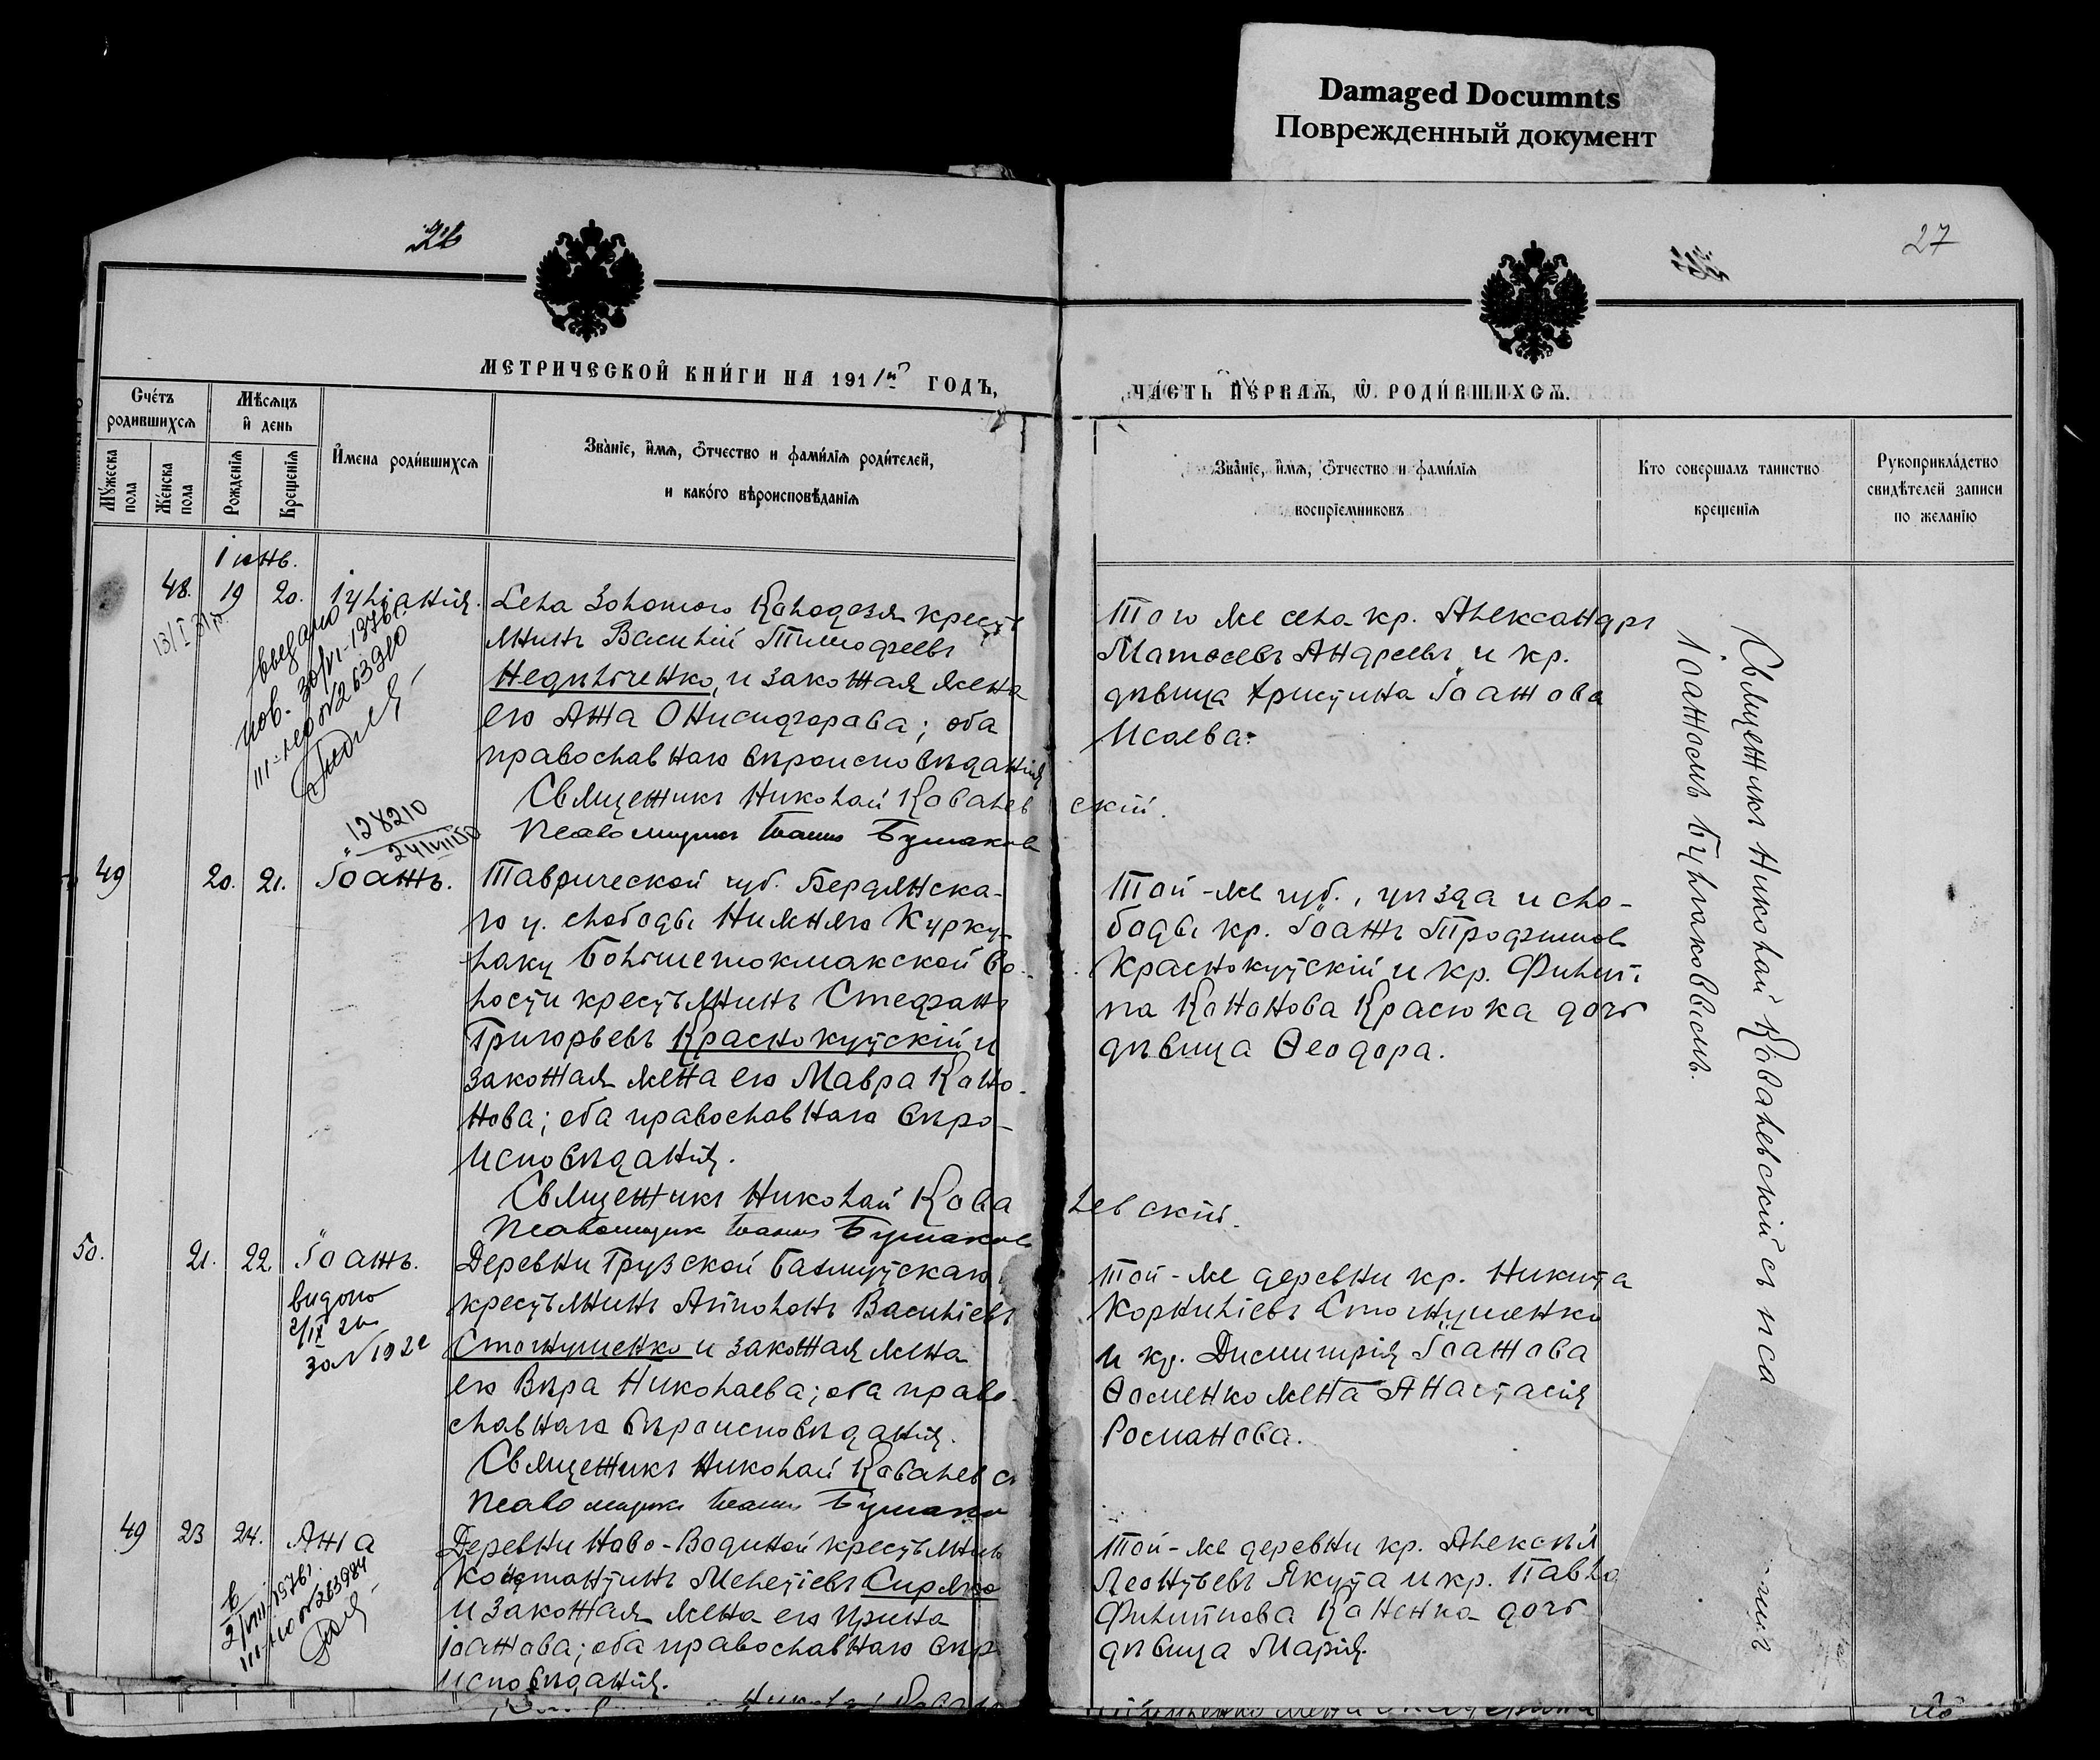 Damaged Documnts
Поврежденный документ
26
27
МЕТРИЧЕСКОЙ КНИГИ НА 1911й ГОДЪ,
ЧАСТЬ ПЕРВАЯ, Ѿ РОДИВШИХСЯ.
Счетъ родившихся
Мѣсяцъ и день
Мужеска пола
Женска пола
Рожденія
Крещенія
Имена родившихся
Званіе, имя, ѻтчество и фамилія родителей,
и какого вѣроисповѣданія
Званіе, имя, ѻтчество и фамилія
воспріемниковъ
Кто совершалъ таинство
крещенія
Рукоприкладство
свидѣтелей записи
по желанію
Іюнь.
48. 19 20. Іуліанія.
Села Золотого Колодезя кресть
янинъ Василій Тимофеевъ
Недильченко, и законная жена
его Анна Онисифорова; оба
православнаго вѣроисповѣданія
Священникъ Николай Ковалев
скій.
Псаломщикъ Іоаннъ Булмаковъ
Того же села кр. Александръ
Матѳеевъ Андреевъ и кр.
дѣвица Христина Іоаннова
Исаева.
13/I 31 г.
выдано
пов. 30/VI-1976 г.
III-НО № 263910
128210
24/VIII 50
49 20. 21. Іоаннъ.
Таврической губ. Бердянска-
го у. слободы Нижняго Курку-
лаку Большетокмакской во-
лости крестьянинъ Стефанъ
Григорьевъ Краснокутскій и
законная жена его Мавра Коно-
нова; оба православнаго вѣро-
исповѣданія.
Священникъ Николай Кова
левскій.
Псаломщикъ Іоаннъ Булмаковъ
Той-же губ., уѣзда и сло-
боды кр. Іоаннъ Трофимовъ
Краснокутскій и кр. Филип-
па Кононова Красюка дочь
дѣвица Ѳеодора.
50. 21. 22. Іоаннъ.
видано
2/IX 20
за N 1922
Деревни Грузской Бахмутскаго
крестьянинъ Апполонъ Василіевъ
Стогнушенко и законная жена
его Вѣра Николаева; оба право-
славнаго вѣроисповѣданія.
Священникъ Николай Ковалевс
Псаломщикъ Іоаннъ Булмаков
Той-же деревни кр. Никита
Корниліевъ Стогнушенко
и кр. Димитрія Іоаннова
Ѳоменко жена Анастасія
Романова.
49 23 24. Анна
в
2/VIII-1976 г.
III-НО № 263984
Деревни Ново-Водяной крестьянинъ
Константинъ Мелетіевъ Сиряко
и законная жена его Ирина
Іоаннова; оба православнаго вѣро
исповѣданія.
Той-же деревни кр. Алексѣй
Леонтьевъ Якута и кр. Павла
Филиппова Каненка дочь
дѣвица Марія.
Священникъ Николай Ковалевскій съ пса
Іоанномъ Булмаковымъ.